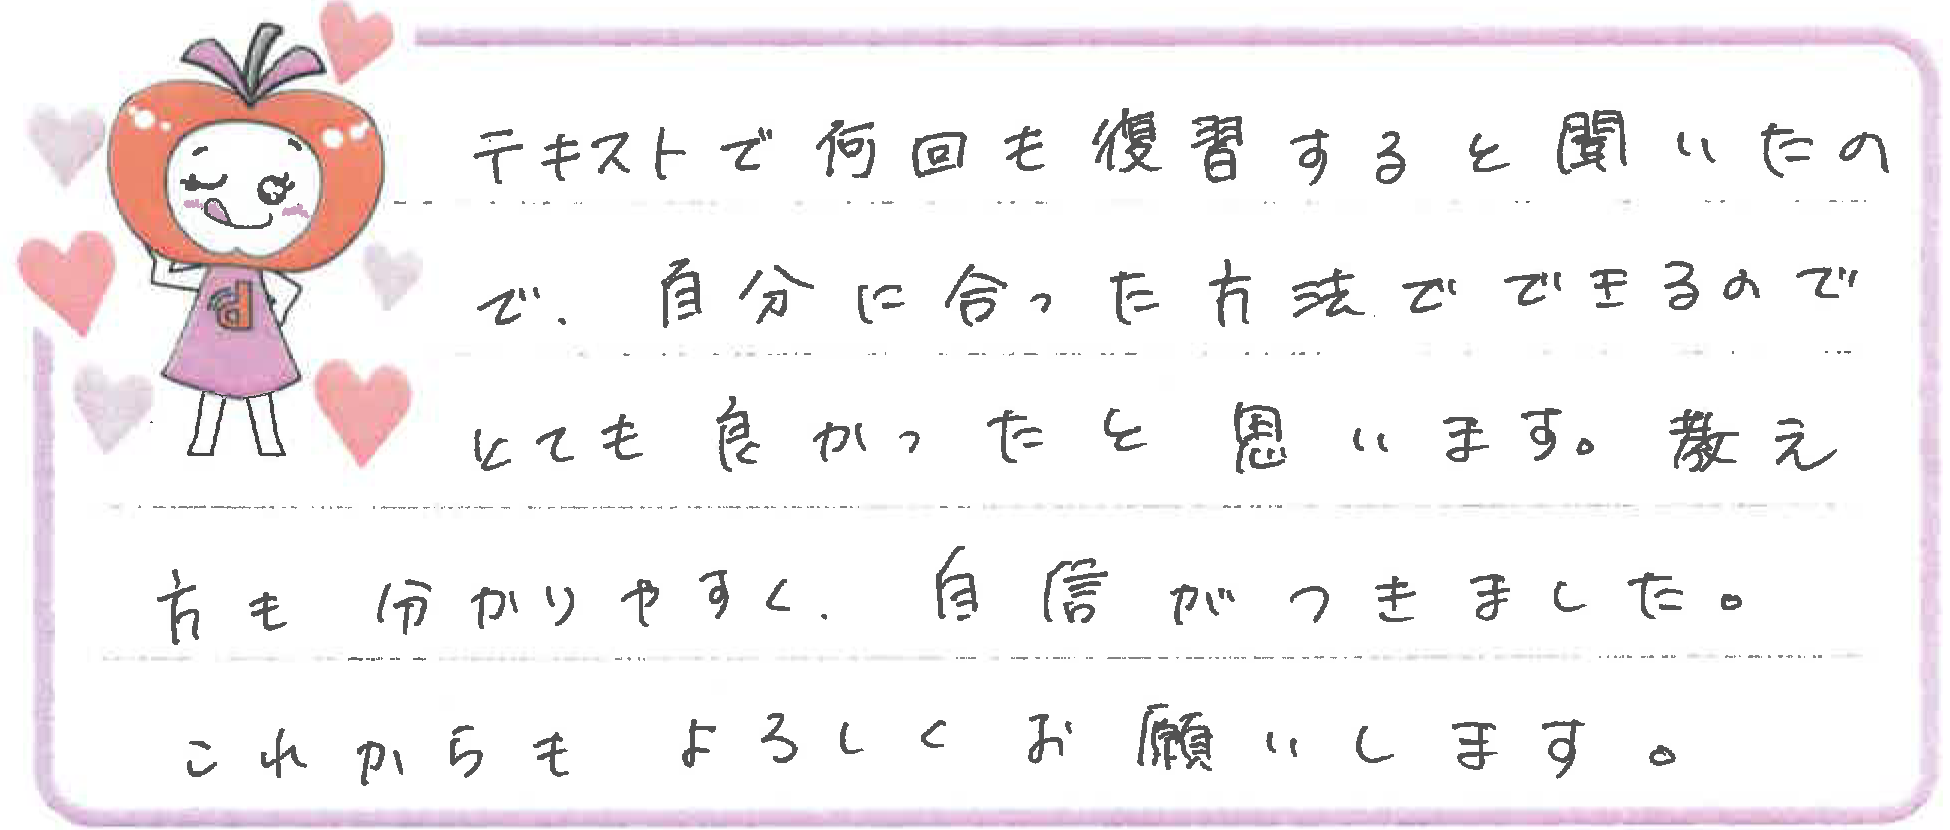 テキストで何回も復習すると聞いたの
で、自分に合った方法でできるので
とても良かったと思います。教え
方も分かりやすく、自信がつきました。
これからもよろしくお願いします。